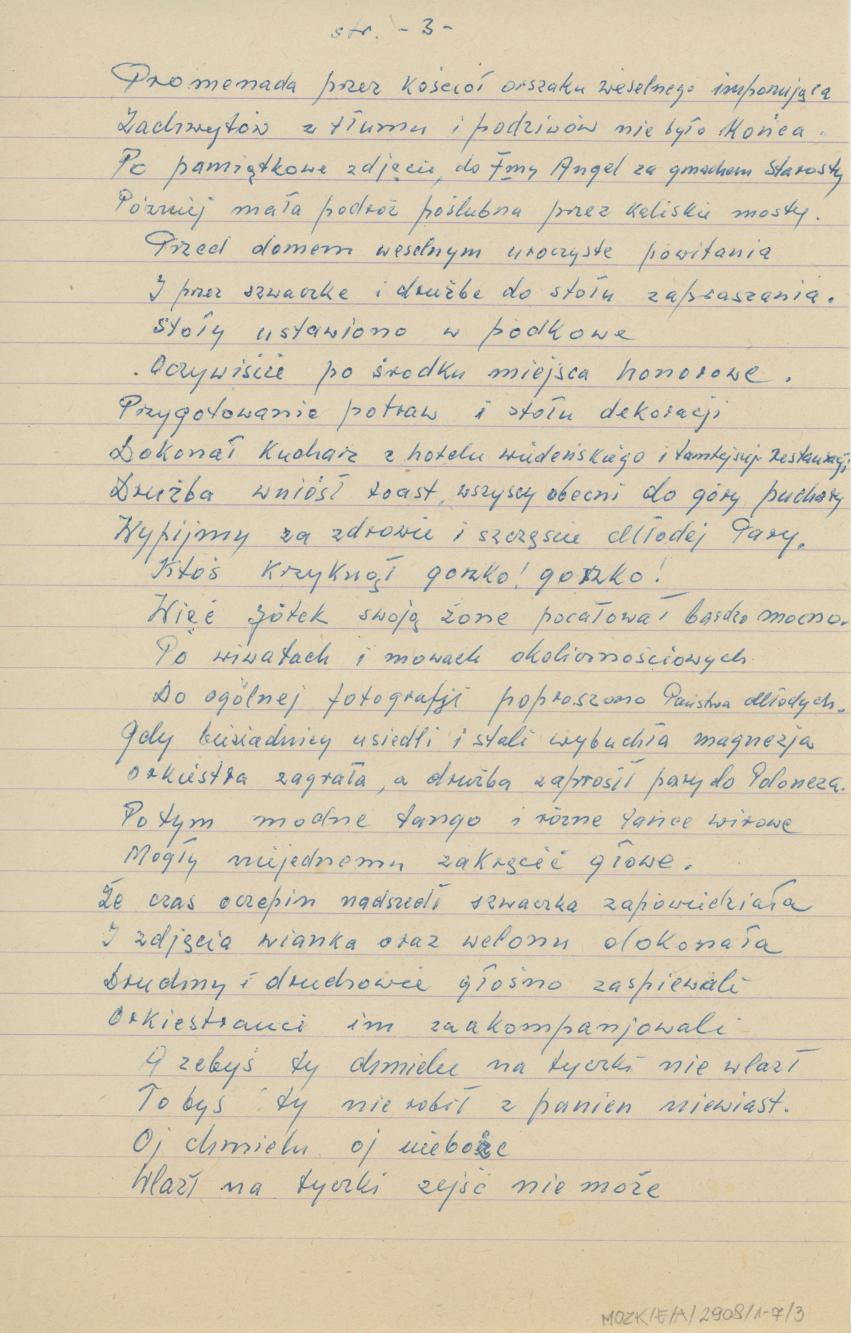 str. - 3 -
Promenada przez kościół orszaku weselnego imponująca
Zachwytów z tłumu i podziwów nie było końca.
Po pamiątkowe zdjęcie, do Fmy Angel za gmachem Starosty
Później mała podróż poślubna przez kaliskie mosty.
Przed domem weselnym uroczyste powitania
I przez szwaczkę i drużbę do stołu zapraszania.
Stoły ustawiono w podkowe
Oczywiście po środku miejsca honorowe.
Przygotowanie potraw i stołu dekoracji
Dokonał Kucharz z hotelu wiedeńskiego i tamtejszej restauracji
Drużba wniósł toast, wszyscy obecni do góry puchary
Wypijmy za zdrowie i szczęście Młodej Pary.
Ktoś krzyknął gorzko! gorzko!
Więc Józek swoją żone pocałował bardzo mocno.
Po wiwatach i mowach okolicznościowych
Do ogólnej fotografji poproszono Państwa Młodych.
Gdy biesiadnicy usiedli i stali wybuchła magnezja
Orkiestra zagrała, a drużba zaprosił pary do Poloneza.
Potym modne tango i różne tańce wirowe
Mogły niejednemu zakręcić głowe.
Że czas oczepin nadszedł szwaczka zapowiedziała
I zdjęcia wianka oraz welonu dokonała
Druchny i druchowie głośno zaspiewali
Orkiestranci im zaakompanjowali
A żebyś ty chmielu na tyczki nie wlazł
To byś ty nie robił z panien niewiast.
Oj chmielu oj nieboże
Wlazł na tyczki zejść nie może
MOZK/E/A/2908/1-7/3